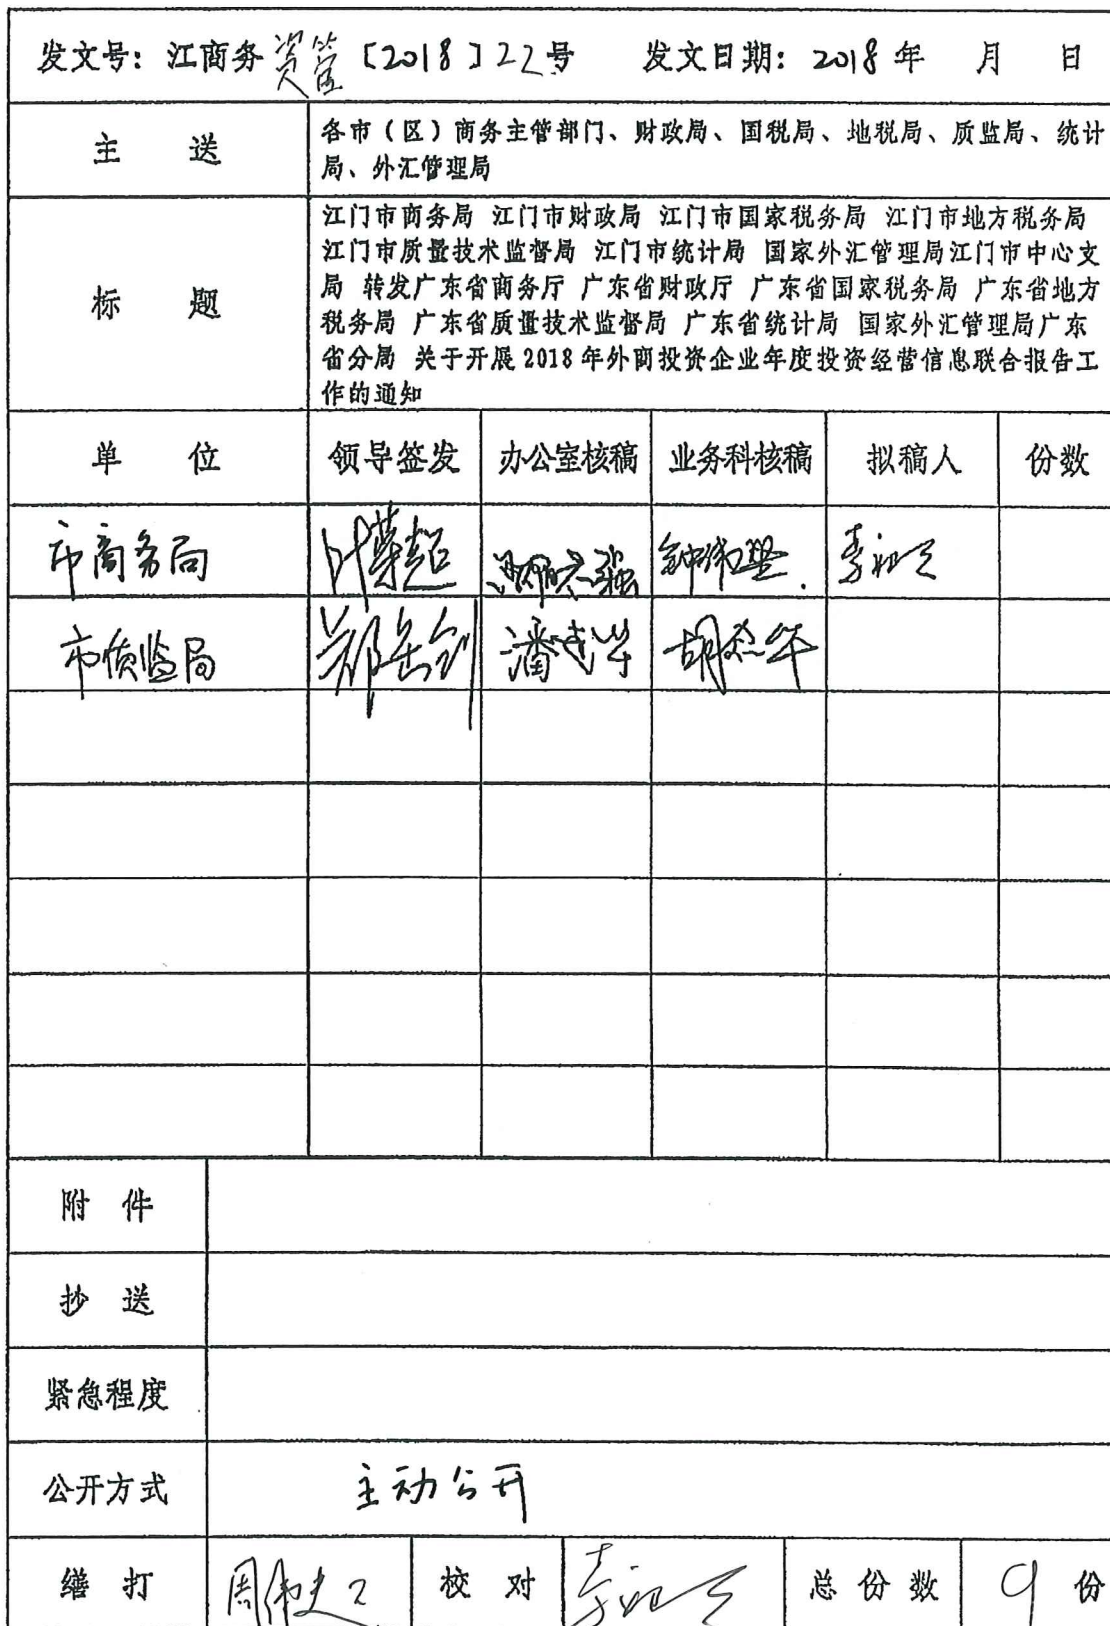 发文号：江商务资管〔2018〕22号 发文日期：2018年 月 日
主 送
各市（区）商务主管部门、财政局、国税局、地税局、质监局、统计
局、外汇管理局
标 题
江门市商务局 江门市财政局 江门市国家税务局 江门市地方税务局
江门市质量技术监督局 江门市统计局 国家外汇管理局江门市中心支
局 转发广东省商务厅 广东省财政厅 广东省国家税务局 广东省地方
税务局 广东省质量技术监督局 广东省统计局 国家外汇管理局广东
省分局 关于开展2018年外商投资企业年度投资经营信息联合报告工
作的通知
单 位 领导签发 办公室核稿 业务科核稿 拟稿人 份数
市商务局 叶荣超
市质监局
附 件
抄 送
紧急程度
公开方式 主动公开
缮 打 校 对 总 份 数 9 份